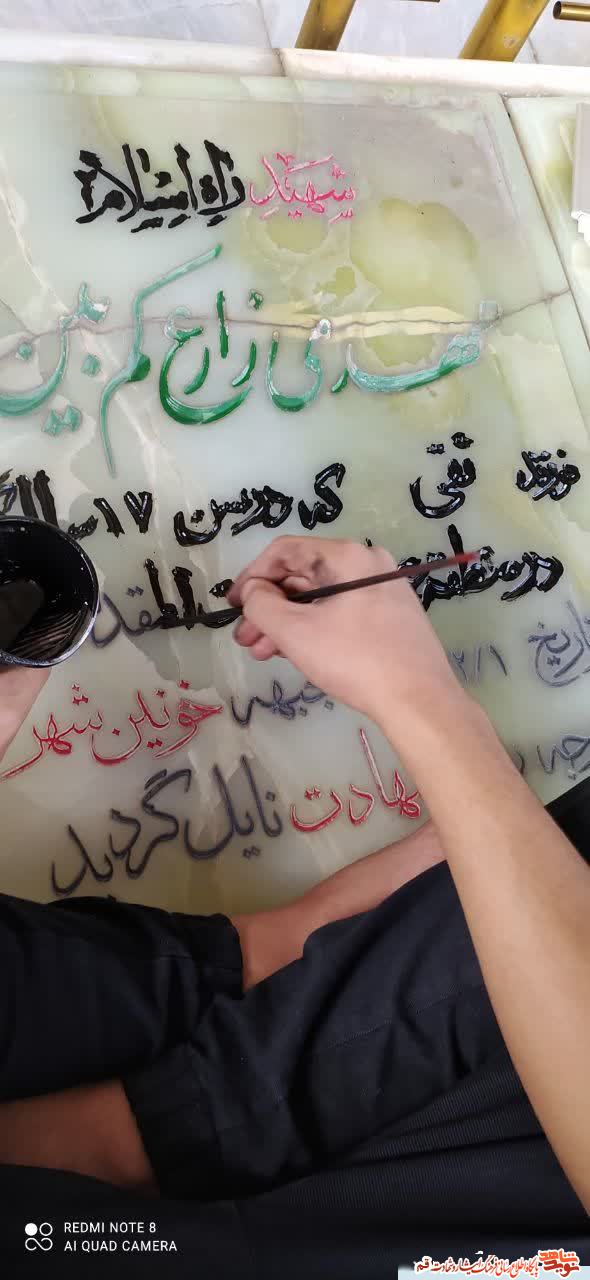 شهید راه اسلام
مهدی زارع کمین
فرزند تقی که در سن ۱۷ سالگی
در
تاریخ ۲/۱ جبهه خونین شهر
شهادت نایل گردید
REDMI NOTE 8
AI QUAD CAMERA
نوید شاهد پایگاه اطلاع رسانی فرهنگ ایثار و شهادت قم